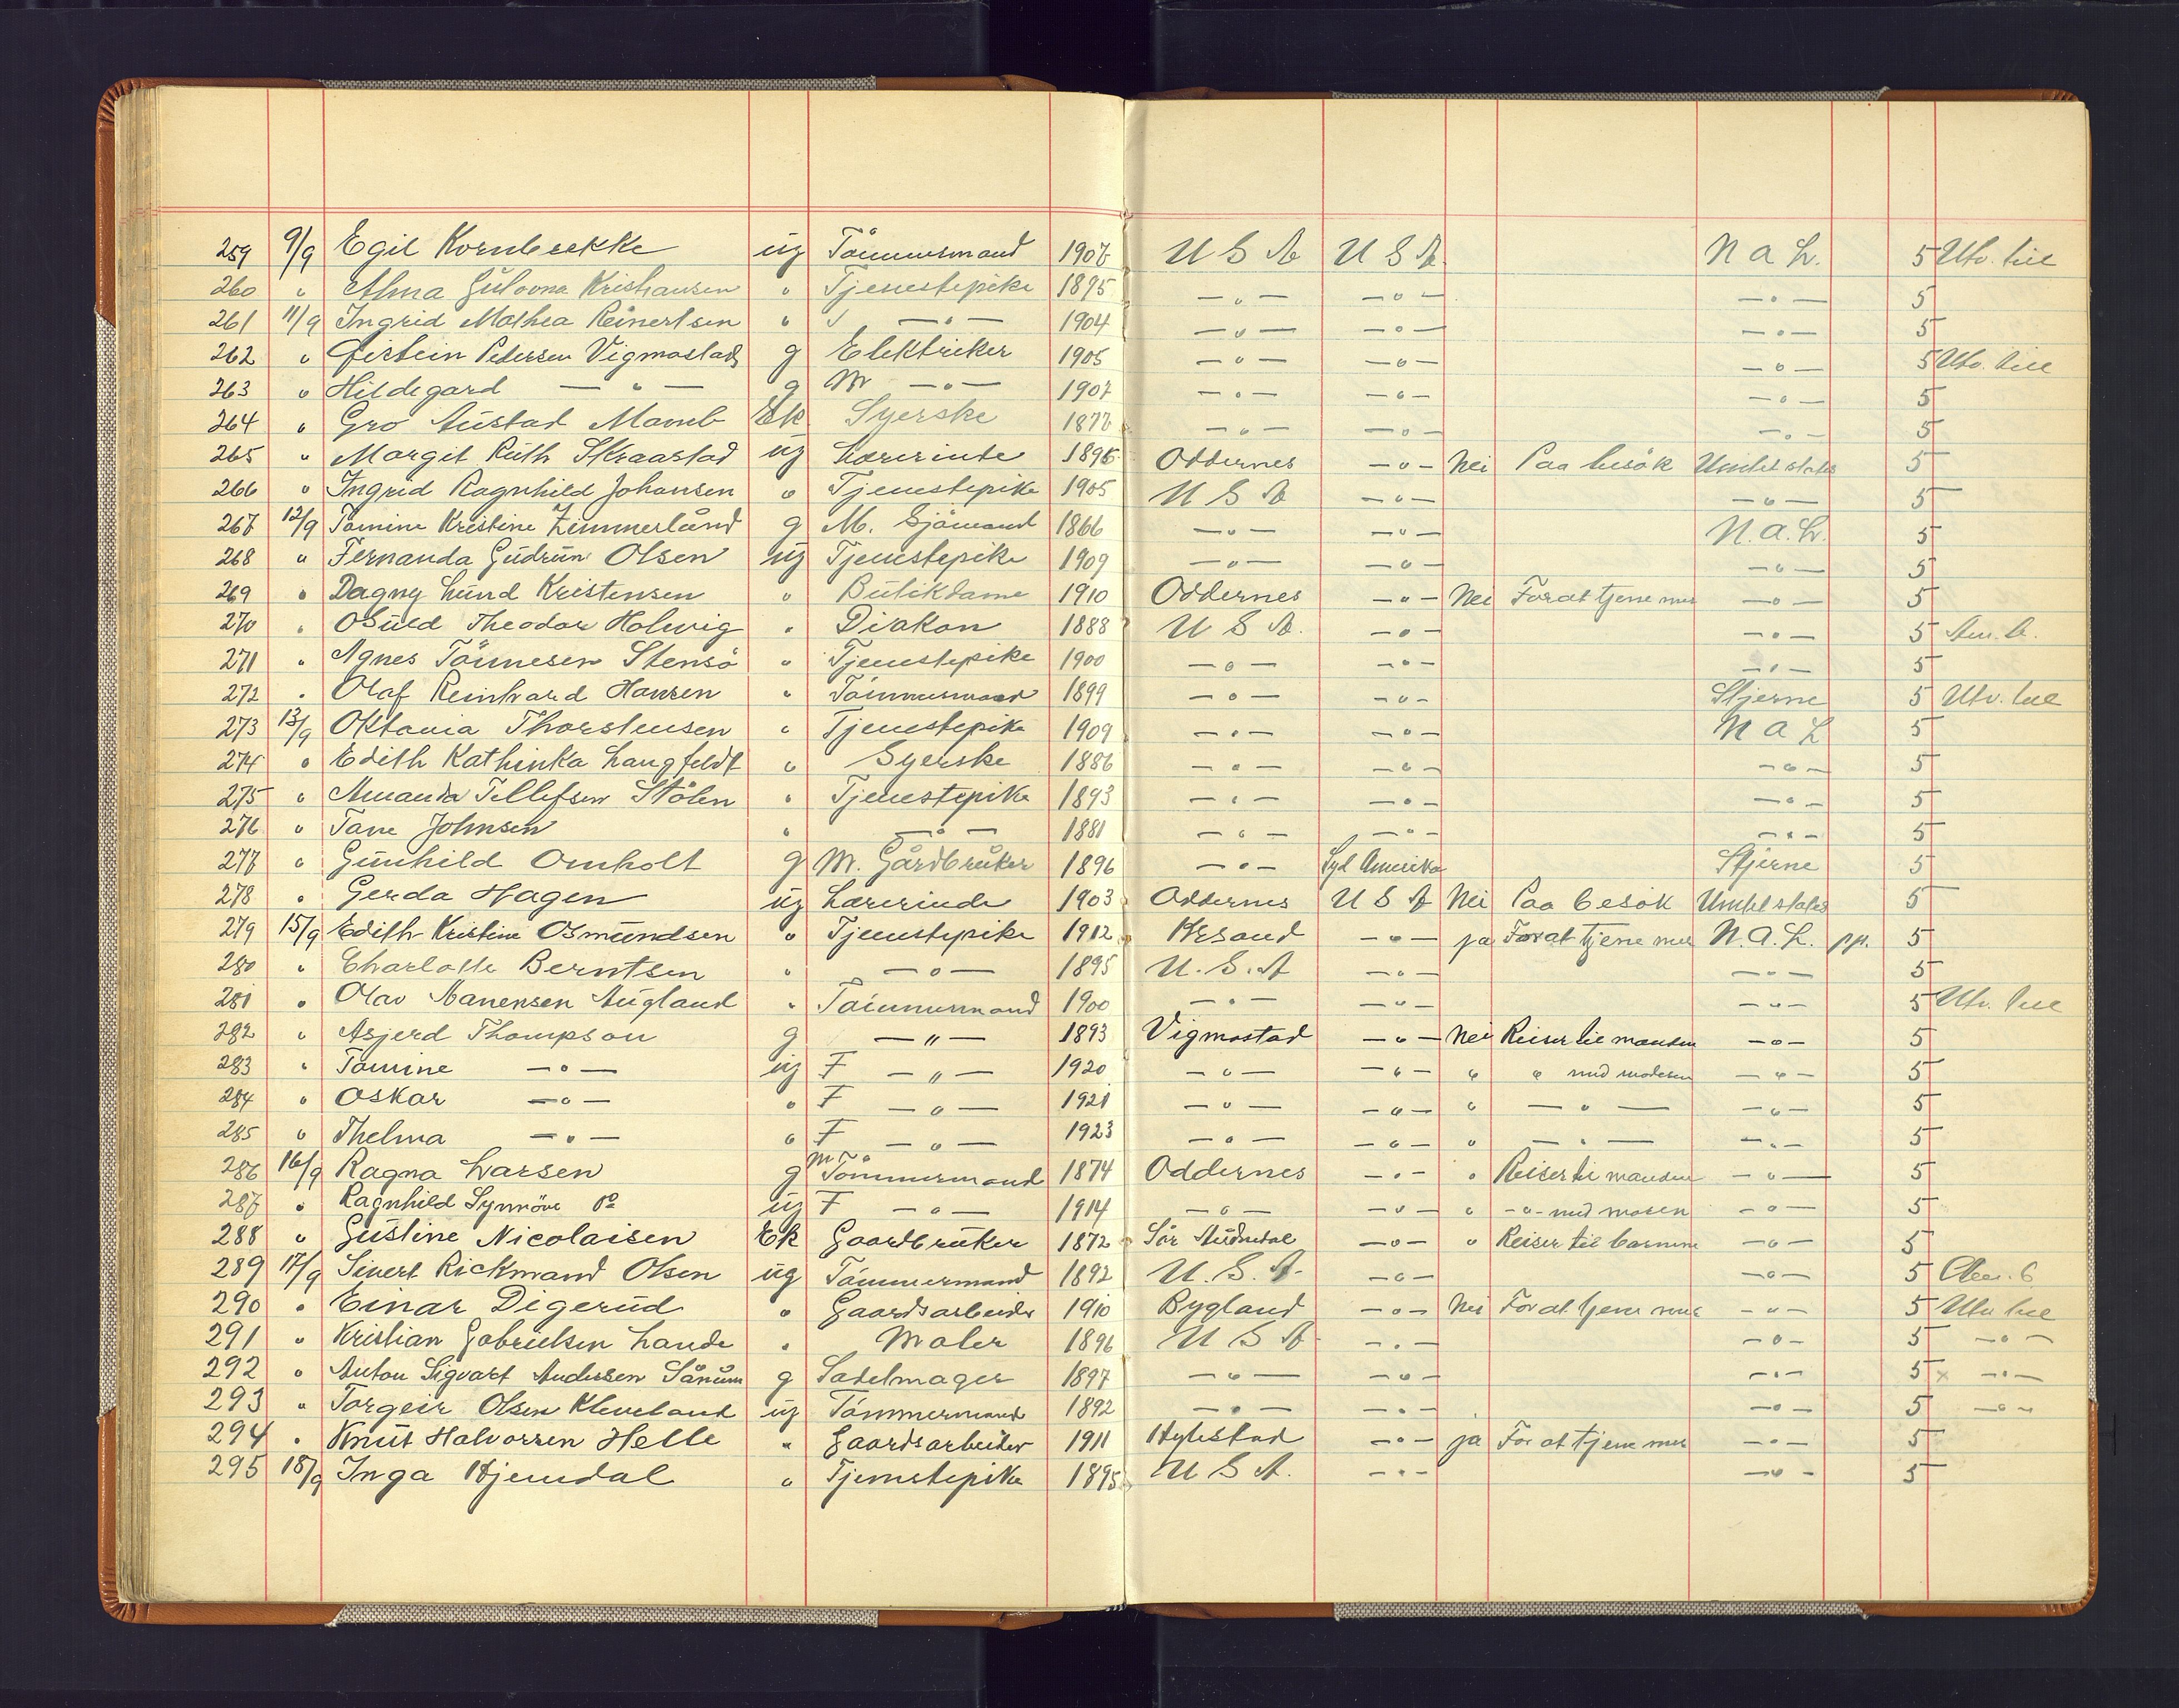 259 9/9 Egil Kornbrekke ug Tömmermand 1907 U S A U S A N A L. 5 Utv. till
260 " Alma Gulovna Kristiansen " Tjenestepike 1895 — " — — " — — " — 5
261 11/9 Ingrid Mathea Reinertsen " — " — 1904 — " — — " — — " — 5
262 " Øistein Pedersen Vigmostad g Elektriker 1905 — " — — " — — " — 5 Utv. till
263 " Hildegard — " — g M — " — 1907 — " — — " — — " — 5
264 " Gro Austad Momb Ek Syerske 1877 — " — — " — — " — 5
265 " Margit Ruth Skraastad ug Lærerinde 1895 Oddernes — " — Nei Paa besök United states 5
266 " Ingrid Ragnhild Johansen " Tjenestepike 1905 U S A — " — — " — 5
267 12/9 Tomine Kristine Zimmerlund g M. Sjömand 1866 — " — — " — N. A. L. 5
268 " Fernanda Gudrun Olsen ug Tjenestepike 1909 — " — — " — — " — 5
269 " Dagny Lund Kristensen " Butikdame 1910 Oddernes — " — Nei For at tjene mer — " — 5
270 " Osuld Theodor Holmig " Diakon 1888 U S A. — " — — " — 5 Am. b.
271 " Agnes Tönnesen Stensö " Tjenestepike 1900 — " — — " — — " — 5
272 " Olaf Reinhard Hansen " Tömmermand 1899 — " — — " — Stjerne 5 Utv. till
273 13/9 Oktavia Thorstensen " Tjenestepike 1909 — " — — " — N A L 5
274 " Edith Kathinka Langfeldt " Syerske 1886 — " — — " — — " — 5
275 " Amanda Tellefsen Stölen " Tjenestepike 1893 — " — — " — — " — 5
276 " Tane Johnsen " — " — 1881 — " — — " — — " — 5
277 " Gunhild Omholt g M. Gårdbruker 1896 — " — Syd Amerika Stjerne 5
278 " Gerda Hagen ug Lærerinde 1903 Oddernes U S A Nei Paa besök United states 5
279 15/9 Edith Kristine Osmundsen " Tjenestepike 1912 Krsand — " — ja For at tjene mer N. A. L. pp. 5
280 " Charlotte Berntsen " — " — 1895 U. S. A — " — — " — 5
281 " Olav Aanensen Augland " Tömmermand 1900 — " — — " — — " — 5 Utv. till
282 " Asjerd Thompson g — " — 1893 Vigmostad — " — Nei Reiser til manden — " — 5
283 " Tomine — " — ug F — " — 1920 — " — — " — " " med moderen — " — 5
284 " Oskar — " — " F — " — 1921 — " — — " — " — " — — " — 5
285 " Thelma — " — " F — " — 1923 — " — — " — " — " — — " — 5
286 16/9 Ragna Larsen g M Tömmermand 1874 Oddernes — " — " Reiser til manden — " — 5
287 " Ragnhild Synnöve do ug F — " — 1914 — " — — " — " — " — med moren — " — 5
288 " Gustine Nicolaisen Ek Gaardbruker 1872 Sör Audnedal — " — " Reiser til barnene — " — 5
289 17/9 Sivert Rickmand Olsen ug Tömmermand 1892 U. S. A. — " — — " — 5 Am. b
290 " Einar Digerud " Gaardsarbeider 1910 Bygland — " — Nei For at tjene mer — " — 5 Utv till
291 " Kristian Gabrielsen Lande " Maler 1896 U S A — " — — " — 5 — " —
292 " Anton Sigvart Andersen Sånum g Sadelmager 1897 — " — — " — — " — 5 x — " —
293 " Torgeir Olsen Kleveland ug Tömmermand 1892 — " — — " — — " — 5 — " —
294 " Knut Halvorsen Helle " Gaardsarbeider 1911 Hylestad — " — ja For at tjene mer — " — 5
295 18/9 Inga Kjendal " Tjenestepike 1895 U S A. — " — — " — 5